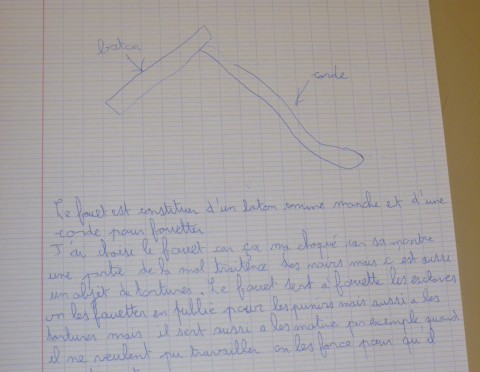 baton
corde
Le fouet est constituer d'un baton comme manche et d'une
corde pour fouetter
J'ai choisie le fouet car ça ma choqué car sa montre
une partie de la mal traitence des noirs mais c est aussi
un objet de tortures. Le fouet sert a fouette les esclaves
on les fouetter en public pour les punirs mais aussi a les
tortures mais il sert aussi a les motive par exemple quand
il ne veulent pu travailler on les force pour qu il